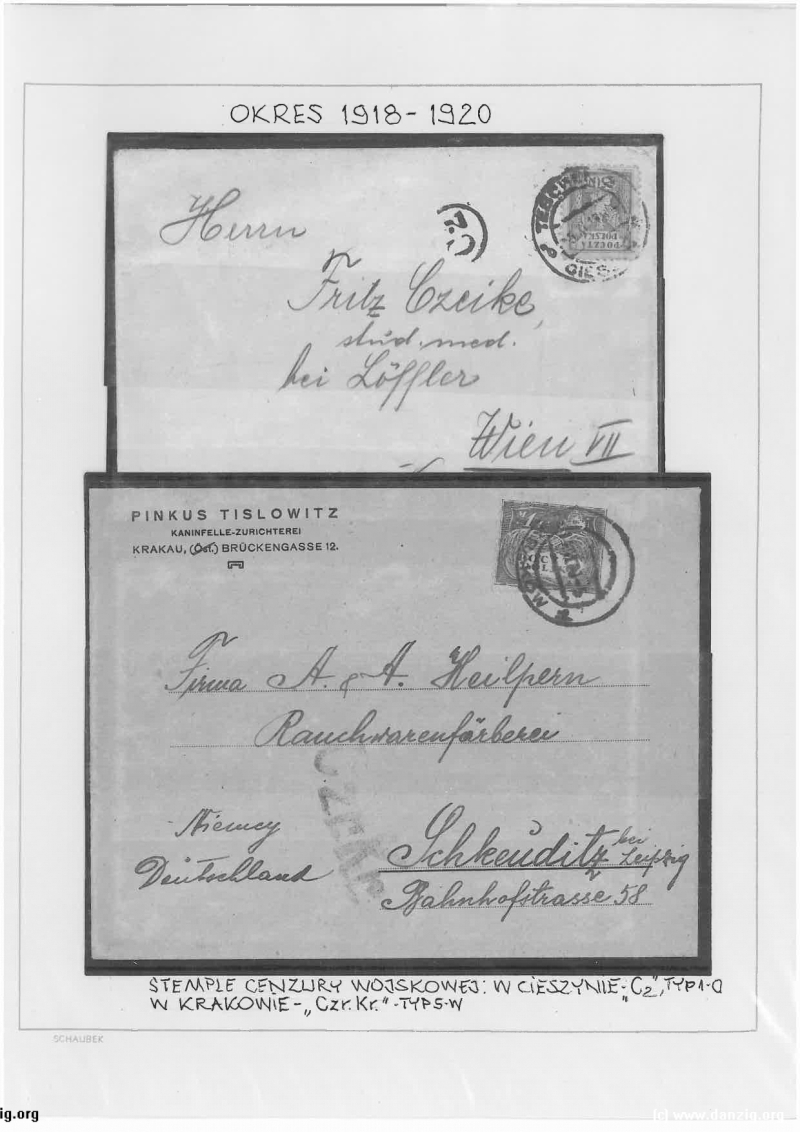 OKRES 1918-1920
TESCHEN
CIES
POCZTA
POLSKA
Herrn
Fritz Czeike,
stud. med.
bei Löffler
Wien VII
PINKUS TISLOWITZ
KANINFELLE-ZURICHTEREI
KRAKAU, (Öst.) BRÜCKENGASSE 12.
Firma A. & A. Heilpern
Rauchwarenfärberei
Niemcy
Deutschland
Schkeuditz bei Leipzig
Bahnhofstrasse 58
STEMPLE CENZURY WOJSKOWEJ: W CIESZYNIE-„C2”, TYP1-O
W KRAKOWIE-„Czr.Kr.”-TYP5-W
SCHAUBEK
ig.org
(c) www.danzig.org